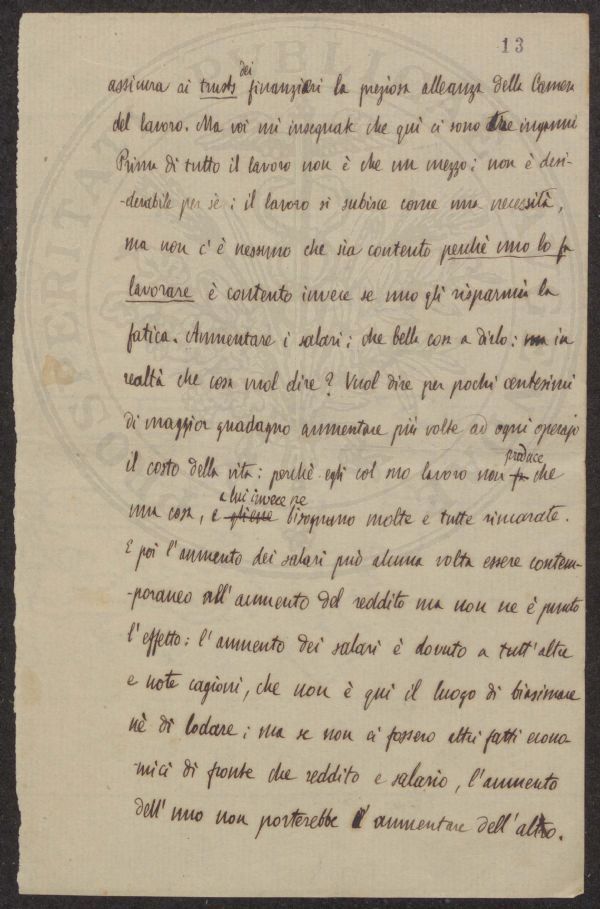 13
assicura ai trusts dei finanzieri la preziosa alleanza della Camera
del lavoro. Ma voi mi insegnate che qui ci sono due inganni
Prima di tutto il lavoro non è che un mezzo; non è desi-
-derabile per sè: il lavoro si subisce come una necessità,
ma non c'è nessuno che sia contento perchè uno lo fa
lavorare è contento invece se uno gli risparmia la
fatica. Aumentare i salari; che bella cosa a dirlo: ma in
realtà che cosa vuol dire? Vuol dire per pochi centesimi
di maggior guadagno aumentare più volte ad ogni operajo
il costo della vita: perchè egli col suo lavoro non produce che
una cosa, e a lui invece ne bisognano molte e tutte rincarate.
E poi l'aumento dei salari può alcuna volta essere contem-
-poraneo all'aumento del reddito ma non ne è punto
l'effetto: l'aumento dei salari è dovuto a tutt'altre
e note cagioni, che non è qui il luogo di biasimare
nè di lodare; ma se non ci fossero altri fatti econo-
-mici di fronte che reddito e salario, l'aumento
dell'uno non porterebbe l'aumentare dell'altro.
PVBLICA